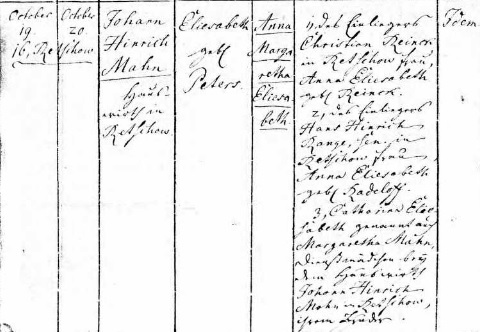 October
19.
16, Retschow
October
20.
Johann
Hinrich
Mahn
Haus-
wirth in
Retschow.
Eliesabeth
gebl
Peters.
Anna
Marga
retha
Eliesa
beth.
1, des Einliegers
Christian Reinck
in Retschow Frau,
Anna Eliesabeth
gebl Reinck.
2, des Einliegers
Hans Hinrich
Range, sen. in
Retschow Frau
Anna Eliesabeth
gebl Radeloff.
3, Catharina Elie-
sabeth genannt auch
Margaretha Mahn,
Dienstmädchen bey
dem Hauswirth
Johann Hinrich
Mahn in Retschow,
ihrem Bruder.
Idem.